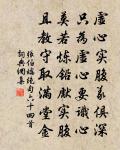 虛心實腹義俱深
只為虛心要識心
莫若煉鉛先實腹
且教守取滿堂金
張伯端絕句六十四首
詞典網集